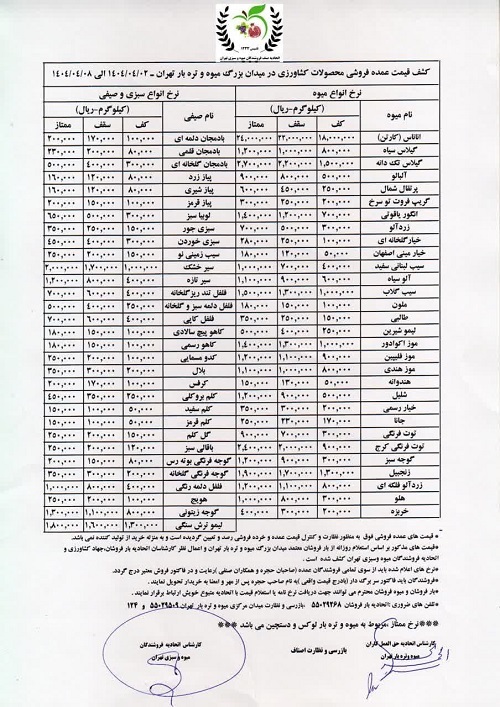 اتحادیه صنف فروشندگان میوه و سبزی تهران
کشف قیمت عمده فروشی محصولات کشاورزی در میدان بزرگ میوه و تره بار تهران ـ ۱۴۰۴/۰۴/۰۲ الی ۱۴۰۴/۰۴/۰۸
نرخ انواع میوه نرخ انواع سبزی و صیفی
نام میوه (کیلوگرم-ریال) نام صیفی (کیلوگرم-ریال)
کف سقف ممتاز کف سقف ممتاز
اناناس (کارتن) ۱۸,۰۰۰,۰۰۰ ۲۲,۰۰۰,۰۰۰ ۲۴,۰۰۰,۰۰۰ بادمجان دلمه ای ۱۰۰,۰۰۰ ۱۷۰,۰۰۰ ۲۰۰,۰۰۰
گیلاس سیاه ۸۰۰,۰۰۰ ۱,۰۰۰,۰۰۰ ۱,۲۰۰,۰۰۰ بادمجان قلمی ۸۰,۰۰۰ ۲۰۰,۰۰۰ ۲۳۰,۰۰۰
گیلاس تک دانه ۱,۵۰۰,۰۰۰ ۲,۲۰۰,۰۰۰ ۲,۷۰۰,۰۰۰ بادمجان گلخانه ای ۳۰۰,۰۰۰ ۴۰۰,۰۰۰ ۵۰۰,۰۰۰
آلبالو ۵۰۰,۰۰۰ ۸۰۰,۰۰۰ ۹۰۰,۰۰۰ پیاز زرد ۸۰,۰۰۰ ۱۲۰,۰۰۰ ۱۶۰,۰۰۰
پرتقال شمال ۲۵۰,۰۰۰ ۴۵۰,۰۰۰ ۶۰۰,۰۰۰ پیاز شیری ۸۰,۰۰۰ ۱۲۰,۰۰۰ ۱۶۰,۰۰۰
گریپ فروت تو سرخ ۲۰۰,۰۰۰ ۲۵۰,۰۰۰ ۳۰۰,۰۰۰ پیاز قرمز ۱۰۰,۰۰۰ ۱۵۰,۰۰۰ ۲۰۰,۰۰۰
انگور یاقوتی ۷۰۰,۰۰۰ ۱,۲۰۰,۰۰۰ ۱,۴۰۰,۰۰۰ لوبیا سبز ۳۰۰,۰۰۰ ۵۰۰,۰۰۰ ۶۵۰,۰۰۰
زردآلو ۳۰۰,۰۰۰ ۵۰۰,۰۰۰ ۷۰۰,۰۰۰ سبزی جور ۱۵۰,۰۰۰ ۲۵۰,۰۰۰ ۳۵۰,۰۰۰
خیارگلخانه ای ۱۰۰,۰۰۰ ۲۵۰,۰۰۰ ۲۸۰,۰۰۰ سبزی خوردن ۳۰۰,۰۰۰ ۴۰۰,۰۰۰ ۴۵۰,۰۰۰
خیار مینی اصفهان ۵۰,۰۰۰ ۱۲۰,۰۰۰ ۱۸۰,۰۰۰ سیب زمینی نو ۱۵۰,۰۰۰ ۲۰۰,۰۰۰ ۲۵۰,۰۰۰
سیب لبنانی سفید ۴۰۰,۰۰۰ ۷۰۰,۰۰۰ ۱,۰۰۰,۰۰۰ سیر خشک ۱,۰۰۰,۰۰۰ ۱,۷۰۰,۰۰۰ ۲,۰۰۰,۰۰۰
آلو سیاه ۵۰۰,۰۰۰ ۹۰۰,۰۰۰ ۱,۱۰۰,۰۰۰ سیر تازه ۴۰۰,۰۰۰ ۸۰۰,۰۰۰ ۱,۲۰۰,۰۰۰
سیب گلاب ۱,۰۰۰,۰۰۰ ۱,۳۰۰,۰۰۰ ۱,۵۰۰,۰۰۰ فلفل تند ریزگلخانه ۴۰۰,۰۰۰ ۶۰۰,۰۰۰ ۷۰۰,۰۰۰
ملون ۱۰۰,۰۰۰ ۱۵۰,۰۰۰ ۱۸۰,۰۰۰ فلفل دلمه سبز و گلخانه ۲۵۰,۰۰۰ ۴۰۰,۰۰۰ ۵۰۰,۰۰۰
طالبی ۱۵۰,۰۰۰ ۲۵۰,۰۰۰ ۳۵۰,۰۰۰ فلفل کاپی ۴۰۰,۰۰۰ ۶۰۰,۰۰۰ ۷۰۰,۰۰۰
لیمو شیرین ۲۵۰,۰۰۰ ۴۰۰,۰۰۰ ۵۰۰,۰۰۰ کاهو پیچ سالادی ۱۰۰,۰۰۰ ۱۵۰,۰۰۰ ۱۸۰,۰۰۰
موز اکوادور ۱,۰۰۰,۰۰۰ ۱,۳۰۰,۰۰۰ ۱,۴۰۰,۰۰۰ کاهو رسمی ۱۰۰,۰۰۰ ۱۵۰,۰۰۰ ۱۸۰,۰۰۰
موز فلیپین ۹۰۰,۰۰۰ ۱,۱۰۰,۰۰۰ ۱,۲۰۰,۰۰۰ کدو مسمایی ۱۰۰,۰۰۰ ۲۰۰,۰۰۰ ۲۵۰,۰۰۰
موز هندی ۸۰۰,۰۰۰ ۱,۰۰۰,۰۰۰ ۱,۱۰۰,۰۰۰ بلال ۲۰۰,۰۰۰ ۳۰۰,۰۰۰ ۳۵۰,۰۰۰
هندوانه ۵۰,۰۰۰ ۱۳۰,۰۰۰ ۱۵۰,۰۰۰ کرفس ۱۰۰,۰۰۰ ۱۷۰,۰۰۰ ۲۰۰,۰۰۰
شلیل ۵۰۰,۰۰۰ ۹۰۰,۰۰۰ ۱,۲۰۰,۰۰۰ کلم بروکلی ۲۵۰,۰۰۰ ۳۵۰,۰۰۰ ۴۵۰,۰۰۰
خیار رسمی ۲۰۰,۰۰۰ ۳۰۰,۰۰۰ ۳۵۰,۰۰۰ کلم سفید ۵۰,۰۰۰ ۱۰۰,۰۰۰ ۱۵۰,۰۰۰
جانا ۱۷۰,۰۰۰ ۲۳۰,۰۰۰ ۲۵۰,۰۰۰ کلم قرمز ۵۰,۰۰۰ ۱۰۰,۰۰۰ ۱۵۰,۰۰۰
توت فرنگی ۳۰۰,۰۰۰ ۷۰۰,۰۰۰ ۹۰۰,۰۰۰ گل کلم ۱۵۰,۰۰۰ ۲۰۰,۰۰۰ ۲۵۰,۰۰۰
توت فرنگی کرج ۹۰۰,۰۰۰ ۲,۰۰۰,۰۰۰ ۲,۴۰۰,۰۰۰ باقالی سبز ۱۲۰,۰۰۰ ۲۰۰,۰۰۰ ۲۵۰,۰۰۰
گوجه سبز ۳۰۰,۰۰۰ ۹۰۰,۰۰۰ ۱,۲۰۰,۰۰۰ گوجه فرنگی بوته رس ۸۰,۰۰۰ ۱۵۰,۰۰۰ ۲۰۰,۰۰۰
زنجبیل ۱,۳۰۰,۰۰۰ ۱,۷۰۰,۰۰۰ ۱,۹۰۰,۰۰۰ گوجه فرنگی گلخانه ۲۰۰,۰۰۰ ۳۰۰,۰۰۰ ۳۵۰,۰۰۰
زردآلو فلکه ای ۸۰۰,۰۰۰ ۱,۰۰۰,۰۰۰ ۱,۱۰۰,۰۰۰ فلفل دلمه رنگی ۴۰۰,۰۰۰ ۸۰۰,۰۰۰ ۱,۰۰۰,۰۰۰
هلو ۳۰۰,۰۰۰ ۸۰۰,۰۰۰ ۱,۰۰۰,۰۰۰ هویج ۱۰۰,۰۰۰ ۲۰۰,۰۰۰ ۲۵۰,۰۰۰
خربزه ۲۰۰,۰۰۰ ۳۰۰,۰۰۰ ۴۰۰,۰۰۰ گوجه زیتونی ۸۰۰,۰۰۰ ۱,۱۰۰,۰۰۰ ۱,۲۰۰,۰۰۰
لیمو ترش سنگی ۱,۳۰۰,۰۰۰ ۱,۶۰۰,۰۰۰ ۱,۸۰۰,۰۰۰
* قیمت های عمده فروشی فوق به منظور نظارت و کنترل قیمت عمده و خرده فروشی رصد و تعیین گردیده است و به منزله خرید از تولید کننده نمی باشد.
*قیمت های مذکور بر اساس استعلام روزانه از بار فروشان معتمد میدان بزرگ میوه و تره بار تهران و اعمال نظر کارشناسان اتحادیه بار فروشان،جهاد کشاورزی و
اتحادیه فروشندگان میوه وسبزی تهران کشف شده است.
*نرخ های اعلام شده باید از سوی تمامی فروشندگان عمده (صاحبان حجره و همکاران صنفی )رعایت و در فاکتور فروش معتبر درج گردد.
*فروشندگان باید فاکتور سر برگ دار (بادرج قیمت واقعی )به نام صاحب حجره پس از مهر و امضا به خریدار تحویل نمایند.
*بار فروشان و میوه فروشان محترم می توانند جهت دریافت نرخ نامه یا استعلام قیمت با اتحادیه متبوع خویش ارتباط برقرار نمایند.
*تلفن های ضروری :اتحادیه بار فروشان ۵۵۰۲۹۲۶۸ بازرسی و نظارت میدان مرکزی میوه و تره بار تهران ۵۵۰۲۹۵۰۹ و ۱۲۴
***نرخ ممتاز ,مربوط به میوه و تره بار لوکس و دستچین می باشد ***
کارشناس اتحادیه حق العمل کاران
میوه وتره بار تهران
بازرسی و نظارت اصناف
کارشناس اتحادیه فروشندگان
میوه و سبزی تهران